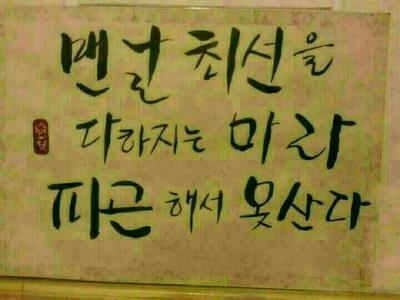 맨날 최선을
다하지는 마라
피곤해서 못산다